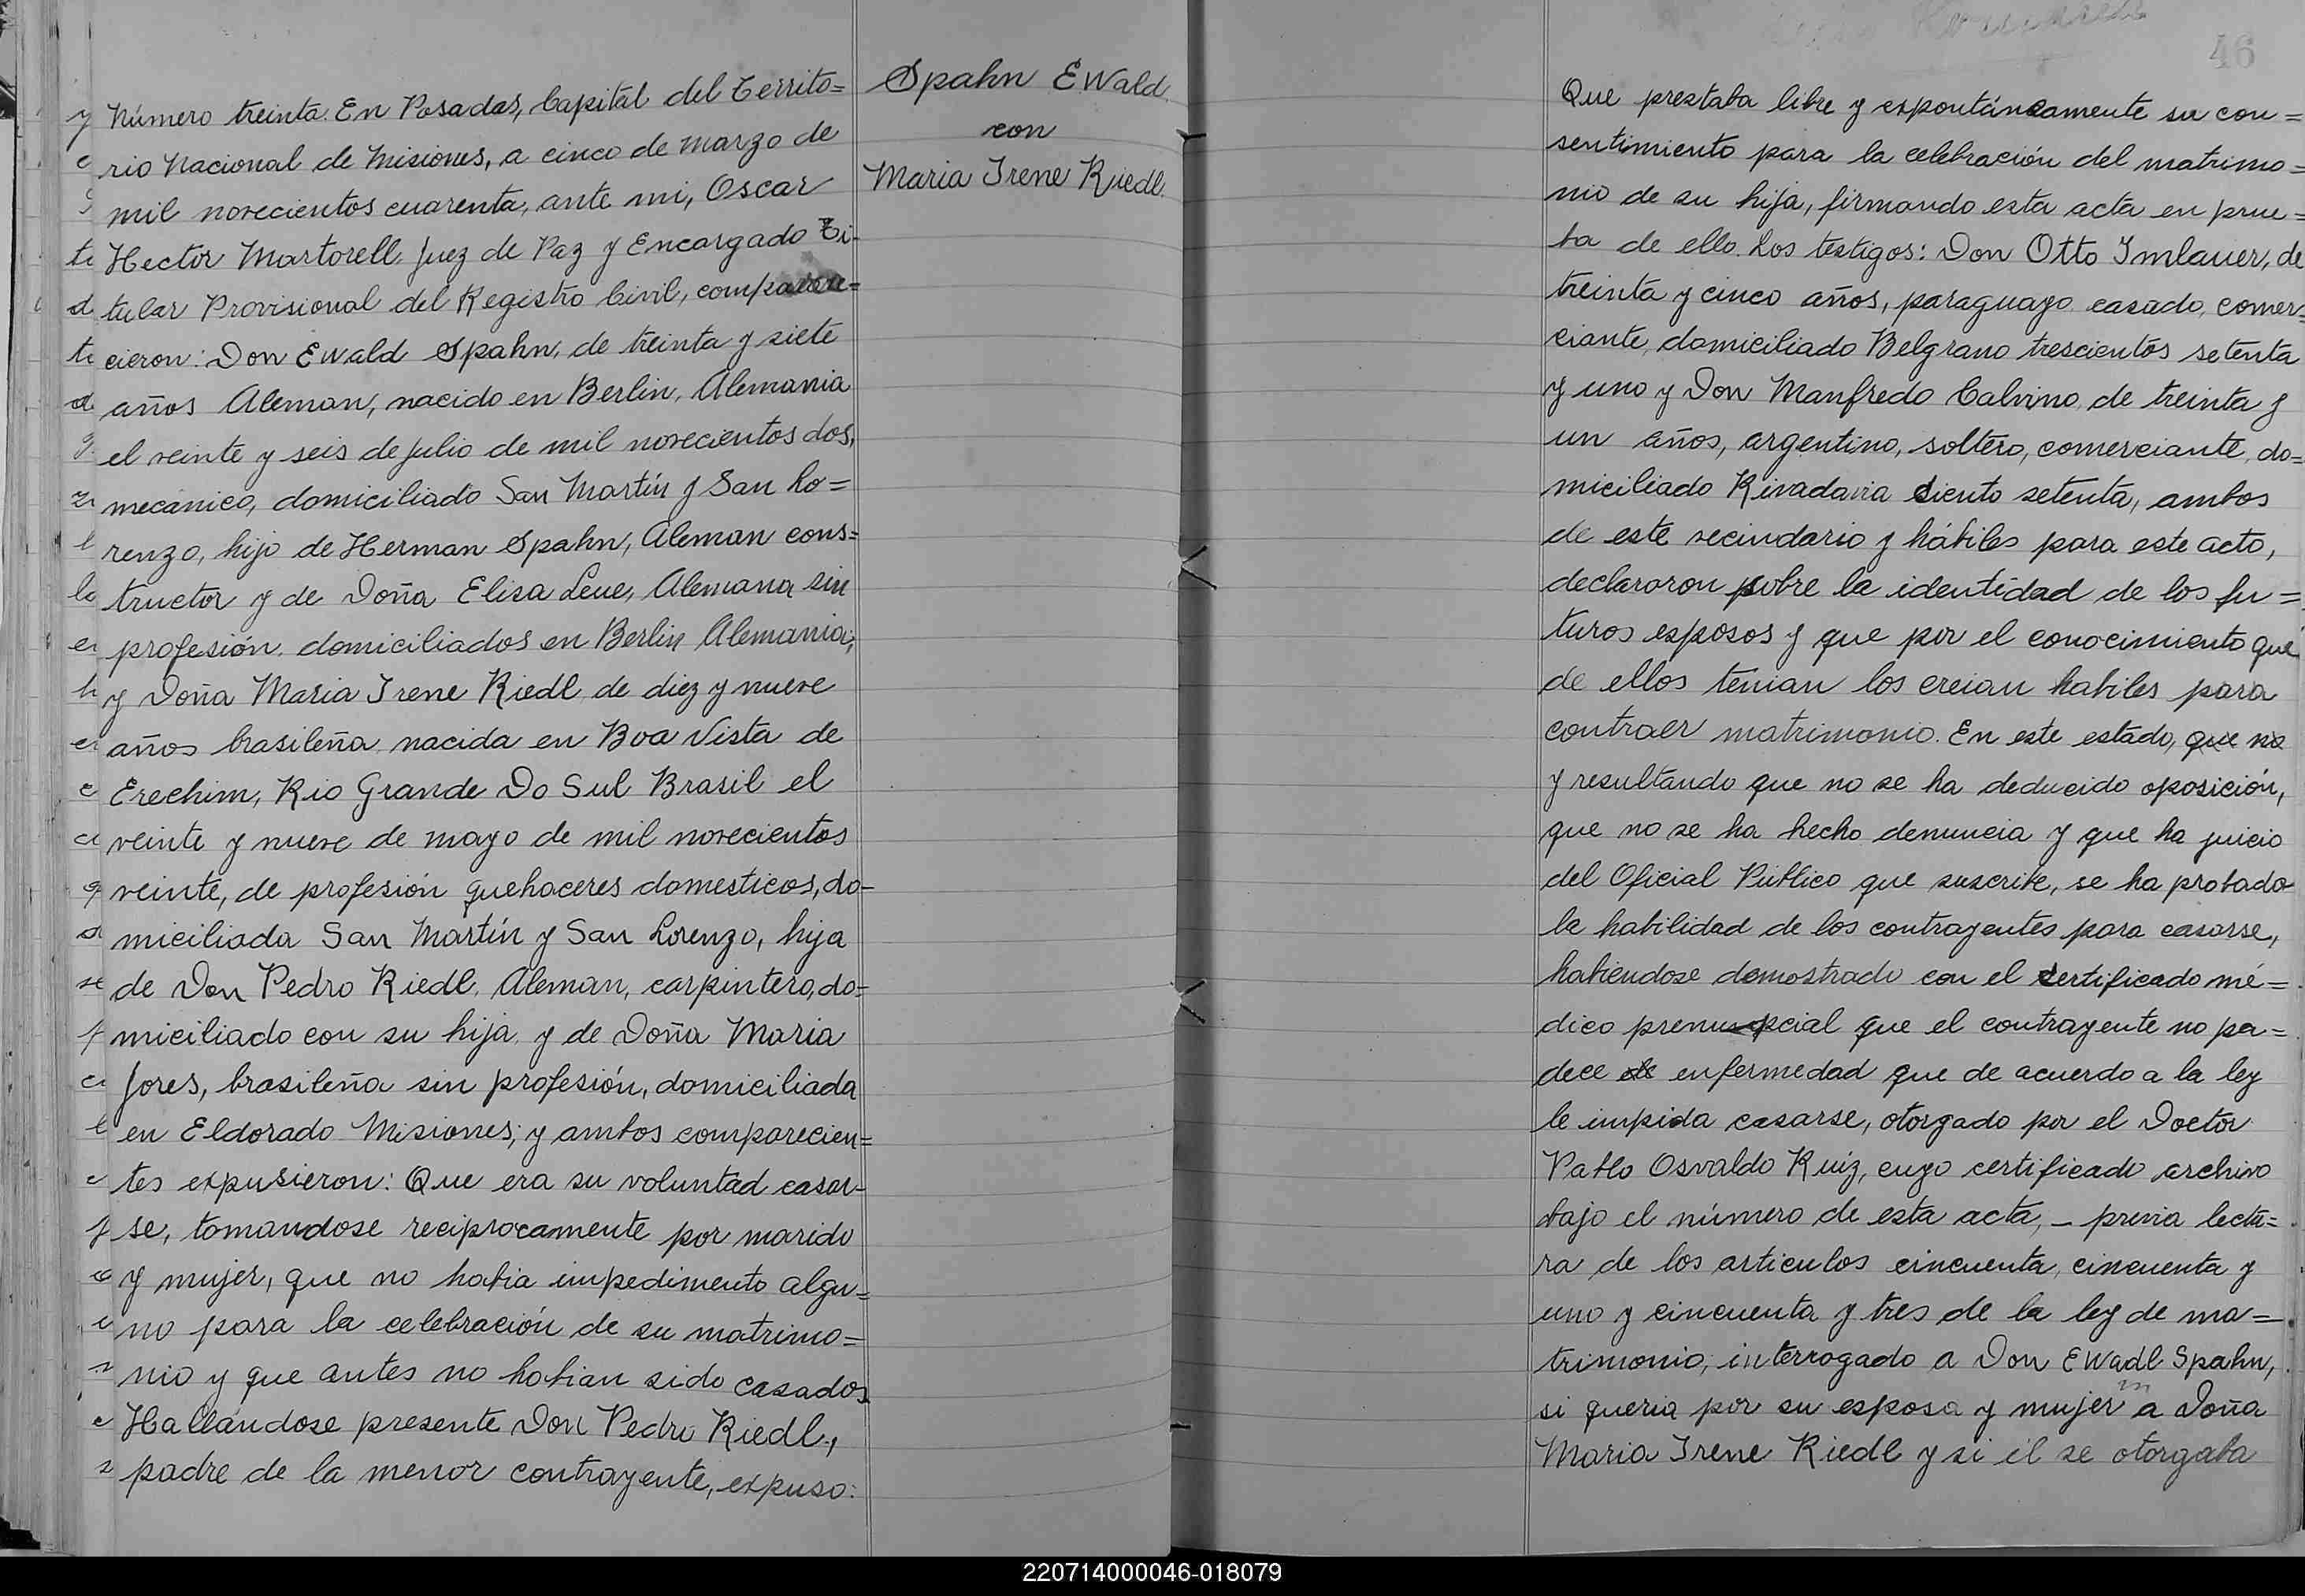 Número treinta. En Posadas, Capital del Territo=
rio Nacional de Misiones, a cinco de marzo de
mil novecientos cuarenta, ante mi, Oscar
Hector Martorell Juez de Paz y Encargado Ti-
tular Provisional del Registro Civil, compare=
cieron: Don Ewald Spahn, de treinta y siete
años Aleman, nacido en Berlin, Alemania
el veinte y seis de julio de mil novecientos dos,
mecánico, domiciliado San Martín y San Lo=
renzo, hijo de Herman Spahn, Aleman cons=
tructor y de Doña Elisa Leue, Alemana sin
profesión domiciliados en Berlin Alemania;
y Doña Maria Irene Riedl de diez y nueve
años brasileña nacida en Boa Vista de
Erechim, Rio Grande Do Sul Brasil el
veinte y nueve de mayo de mil novecientos
veinte, de profesión quehaceres domesticos, do-
miciliada San Martín y San Lorenzo, hija
de Don Pedro Riedl, Aleman, carpintero, do=
miciliado con su hija y de Doña Maria
Jores, brasileña sin profesión, domiciliada
en Eldorado Misiones; y ambos comparecien=
tes expusieron: Que era su voluntad casar-
se, tomandose reciprocamente por marido
y mujer, que no habia impedimento algu=
no para la celebración de su matrimo=
nio y que antes no habian sido casados
Hallándose presente Don Pedro Riedl,
padre de la menor contrayente, expuso:
Spahn EWald
con
Maria Irene Riedl.
46
Que prestaba libre y expontáneamente su con=
sentimiento para la celebración del matrimo=
nio de su hija, firmando esta acta en prue=
ba de ello. Los testigos: Don Otto Imlauer, de
treinta y cinco años, paraguayo casado, comer=
ciante, domiciliado Belgrano trescientos setenta
y uno y Don Manfredo Calvino, de treinta y
un años, argentino, soltero, comerciante, do=
miciliado Rivadavia ciento setenta, ambos
de este vecindario y hábiles para este acto,
declararon sobre la identidad de los fu=
turos esposos y que por el conocimiento que
de ellos tenian los creian habiles para
contraer matrimonio. En este estado, que no
y resultando que no se ha deducido oposición,
que no se ha hecho denuncia y que ha juicio
del Oficial Público que suscribe, se ha probado
la habilidad de los contrayentes para casarse,
habiendose demostrado con el certificado mé=
dico prenupcial que el contrayente no pa=
dece de enfermedad que de acuerdo a la ley
le impida casarse, otorgado por el Doctor
Pablo Osvaldo Ruiz, cuyo certificado archivo
bajo el número de esta acta, - previa lectu=
ra de los articulos cincuenta, cincuenta y
uno y cincuenta y tres de la ley de ma=
trimonio; interrogado a Don EWadl Spahn,
si queria por su esposa y mujer a Doña
Maria Irene Riedl y si él se otorgaba
220714000046-018079